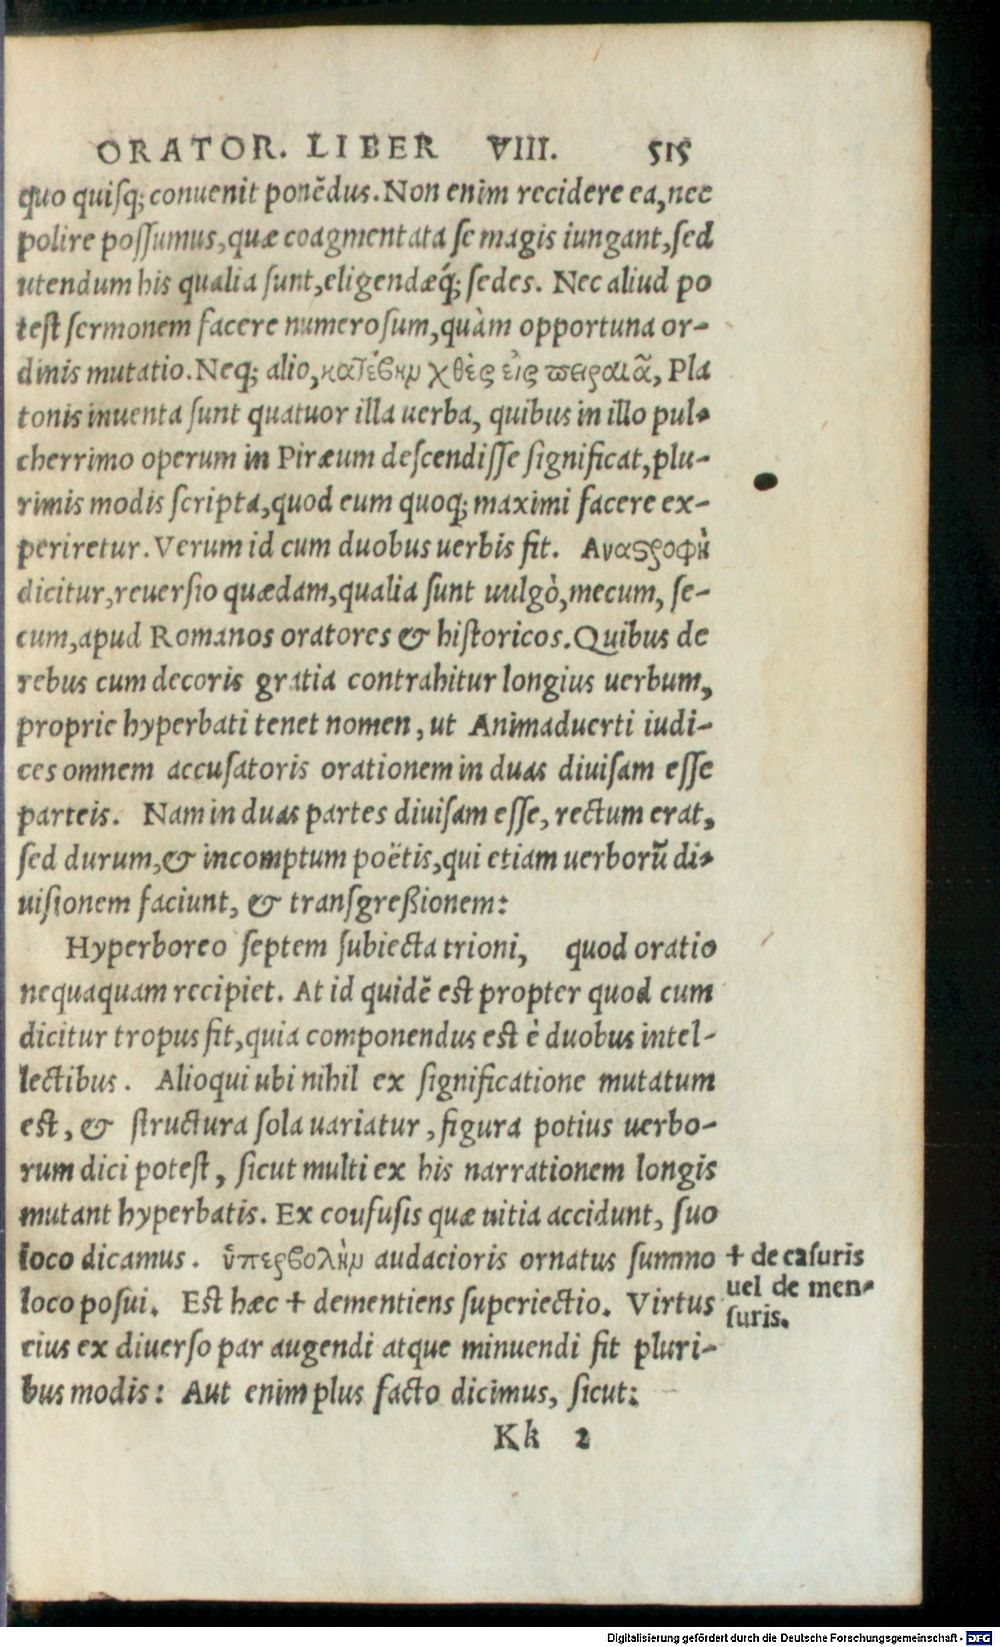 ORATOR. LIBER VIII. 515
quo quiſq; conuenit ponẽdus. Non enim recidere ea, nec
polire poſſumus, quæ coagmentata ſe magis iungant, ſed
utendum his qualia ſunt, eligendæq́; ſedes. Nec aliud po
teſt ſermonem facere numeroſum, quàm opportuna or-
dinis mutatio. Neq; alio, κατέβην χθὲς εἰς πειραιᾶ, Pla
tonis inuenta ſunt quatuor illa uerba, quibus in illo pul-
cherrimo operum in Piræum deſcendiſſe ſignificat, plu-
rimis modis ſcripta, quod eum quoq; maximi facere ex-
periretur. Verum id cum duobus uerbis fit. Αναςροφὴ
dicitur, reuerſio quædam, qualia ſunt uulgò, mecum, ſe-
cum, apud Romanos oratores & hiſtoricos. Quibus de
rebus cum decoris gratia contrahitur longius uerbum,
proprie hyperbati tenet nomen, ut Animaduerti iudi-
ces omnem accuſatoris orationem in duas diuiſam eſſe
parteis. Nam in duas partes diuiſam eſſe, rectum erat,
ſed durum, & incomptum poëtis, qui etiam uerborũ di-
uiſionem faciunt, & tranſgreßionem:
Hyperboreo ſeptem ſubiecta trioni, quod oratio
nequaquam recipiet. At id quidẽ eſt propter quod cum
dicitur tropus fit, quia componendus eſt è duobus intel-
lectibus. Alioqui ubi nihil ex ſignificatione mutatum
eſt, & ſtructura ſola uariatur, figura potius uerbo-
rum dici poteſt, ſicut multi ex his narrationem longis
mutant hyperbatis. Ex coufuſis quæ uitia accidunt, ſuo
loco dicamus. ὑπερβολὴν audacioris ornatus ſummo
loco poſui. Eſt hæc + dementiens ſuperiectio. Virtus
eius ex diuerſo par augendi atque minuendi fit pluri-
bus modis: Aut enim plus facto dicimus, ſicut:
+ de caſuris
uel de men-
ſuris.
Kk 2
Digitalisierung gefördert durch die Deutsche Forschungsgemeinschaft - DFG